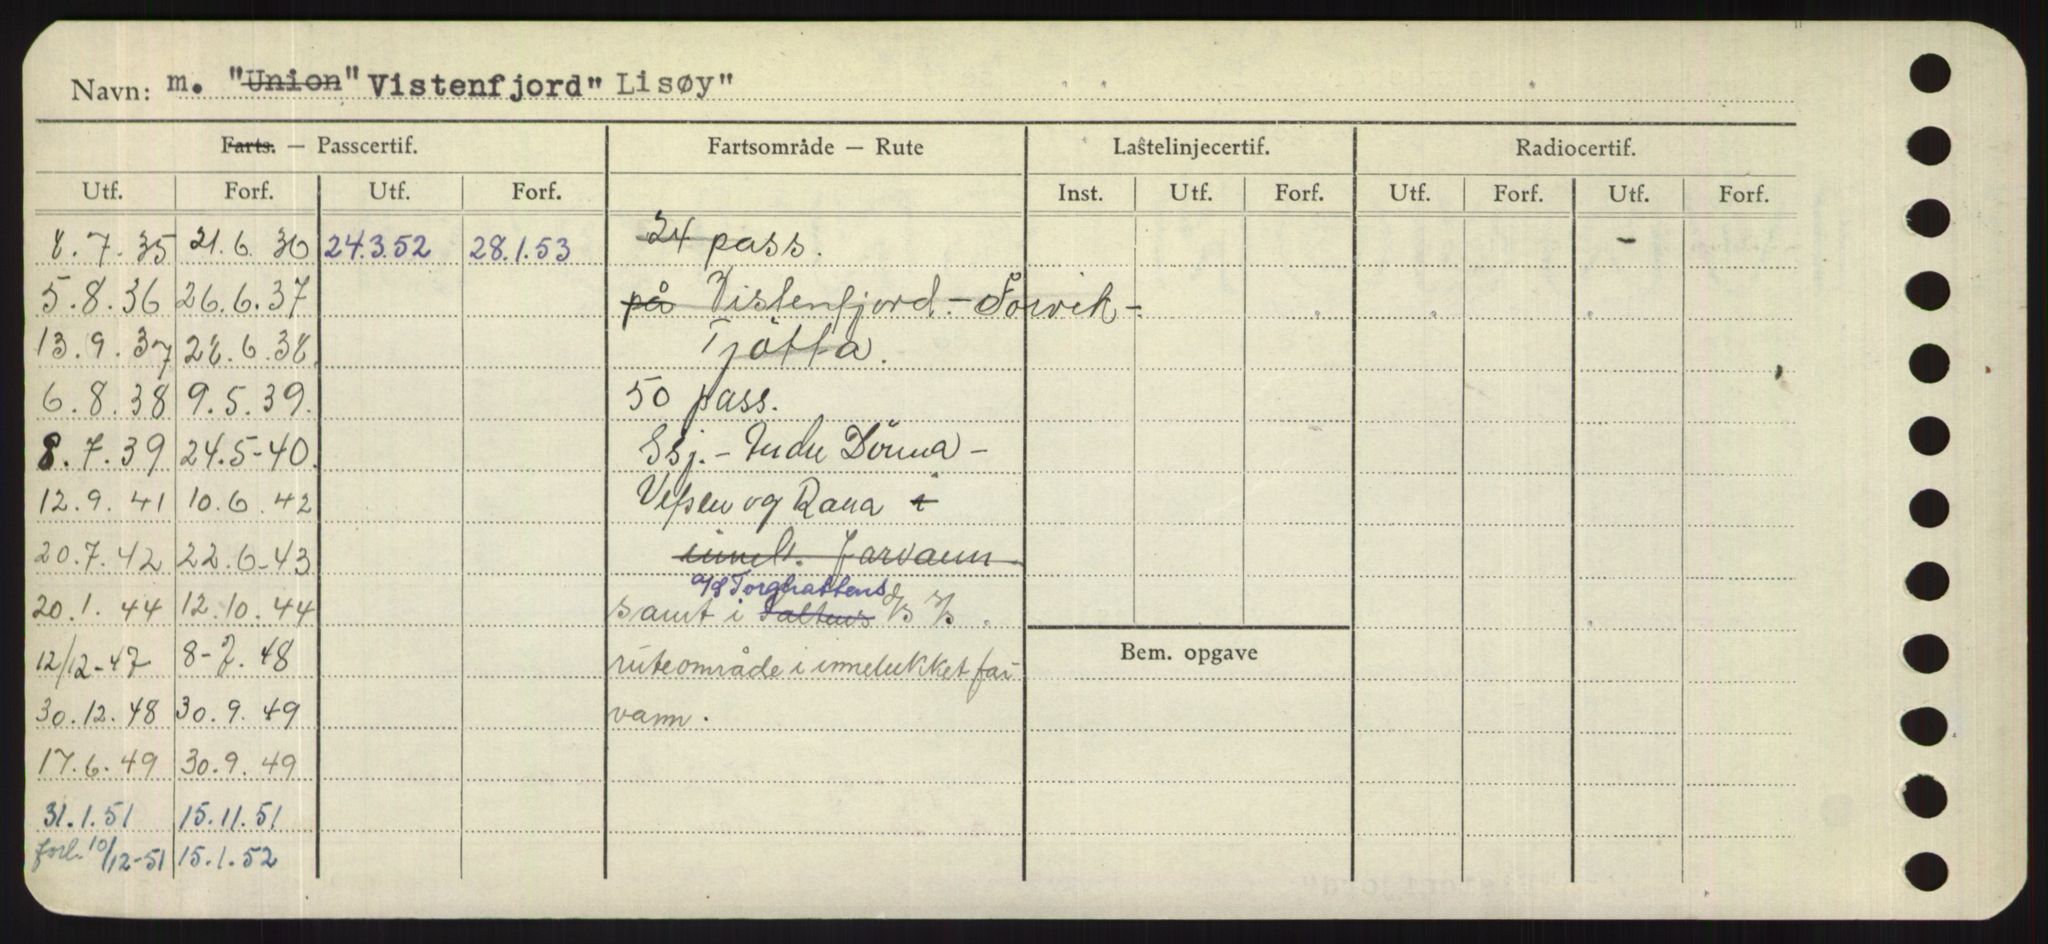 Navn: m. "Union" Vistenfjord" Lisøy"
Farts. — Passcertif. Fartsområde — Rute Laštelinjecertif. Radiocertif.
Utf. Forf. Utf. Forf. Inst. Utf. Forf. Utf. Forf. Utf. Forf.
8.7.35 21.6 36 24.3.52 28.1.53 24 pass.
5.8.36 26.6.37 på Vistenfjord.-Forvik-
13.9.37 28.6.38. Tjøtta.
6.8.38 9.5.39. 50 pass.
8.7.39 24.5-40. Ssj. - Indre Dönna -
12.9.41 10.6.42 Vefsen og Rana i
20.7.42 22.6-43 innel. farvann
a/s Torghattens
20.1.44 12.10.44 samt i Saltens D/S S/S.
12/12-47 8-7.48 ruteområde i innelukket far-
Bem. opgave
30.12.48 30.9.49 vann.
17.6.49 30.9.49
31.1.51 15.11.51
forl. 10/12-51 15.1.52